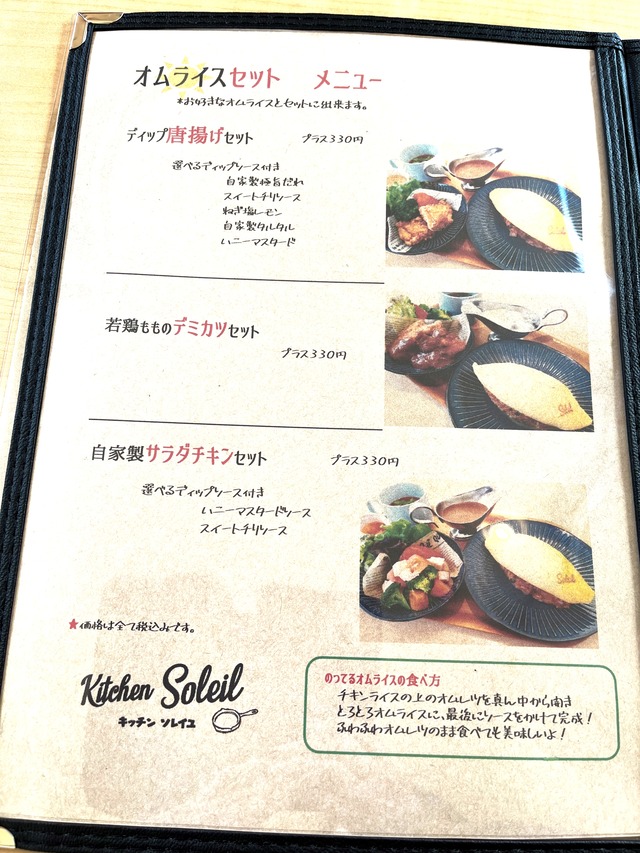 オムライスセット　メニュー
*お好きなオムライスとセットに出来ます。
ディップ唐揚げセット　プラス330円
選べるディップソース付き
自家製極旨だれ
スイートチリソース
ねぎ塩レモン
自家製タルタル
ハニーマスタード
若鶏もものデミカツセット
プラス330円
自家製サラダチキンセット　プラス330円
選べるディップソース付き
ハニーマスタードソース
スイートチリソース
★価格は全て税込みです。
Kitchen Soleil
キッチン ソレイユ
のってるオムライスの食べ方
チキンライスの上のオムレツを真ん中から開き
とろとろオムライスに、最後にソースをかけて完成！
ふわふわオムレツのまま食べても美味しいよ！
Soleil